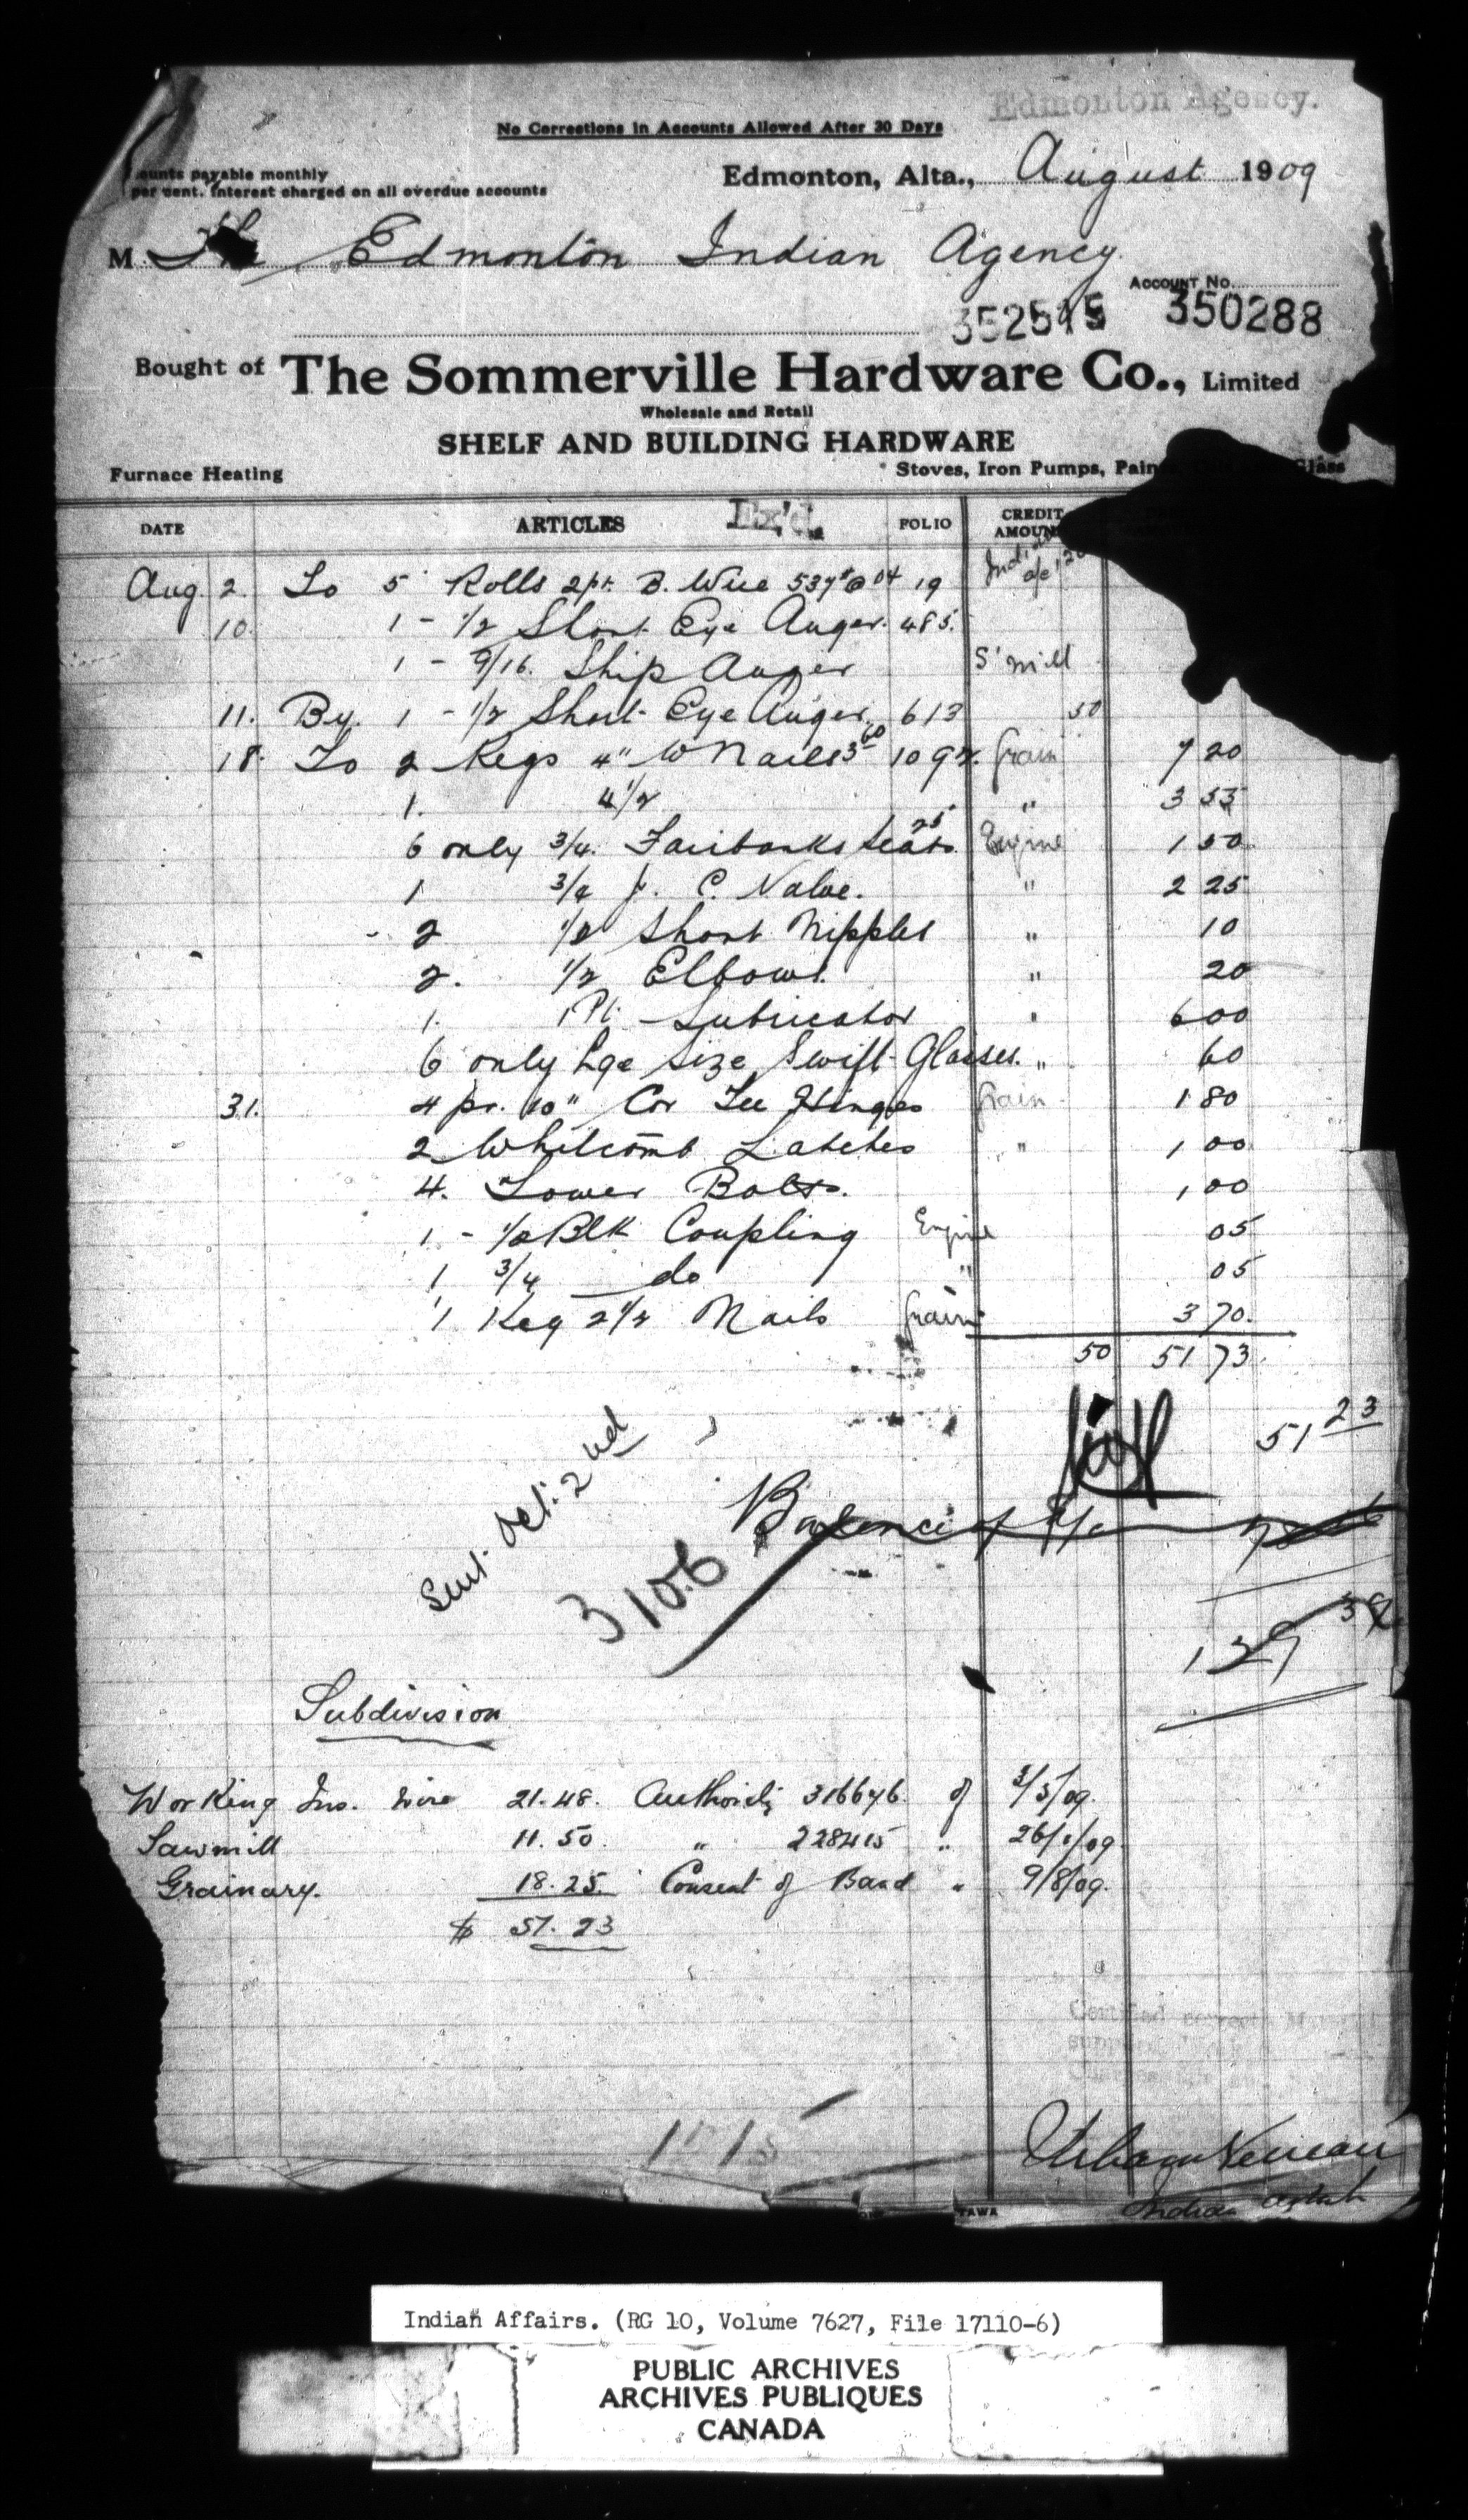 Edmonton Agency.
No Corrections in Accounts Allowed After 30 Days
payable monthly
per cent. interest charged on all overdue accounts
Edmonton, Alta., August 1909
M The Edmonton Indian Agency
Account No.
352515 350288
Bought of The Sommerville Hardware Co., Limited
Wholesale and Retail
SHELF AND BUILDING HARDWARE
Furnace Heating
Stoves, Iron Pumps, Glass
DATE ARTICLES Ex'd. FOLIO CREDIT AMOUNT
Aug. 2. To 5 Rolls 2 pt. B. Wire 537# @ 04 19
10. 1 - 1/2 Short Eye Auger. 485.
1 - 9/16. Ship Auger S' mill
11. By. 1 - 1/2 Short Eye Auger 613 50
18. To 2 Kegs 4" W Nails 3 60 1092. Grain 7 20
1. 4 1/2 " 3 53
6 only 3/4. Fairbanks Seats 25 Engine 1 50
1 3/4 J. C. Valve. " 2 25
2 1/2 Short Nipples " 10
2. 1/2 Elbows. " 20
1. 1 Pt. Lubricator " 6 00
6 only Lge Size Swift Glasses. " 60
31. 4 pr. 10" Cor Tee Hinges Grain 1 80
2 Whitcomb Latches " 1 00
4. Tower Bolts. 1 00
1 - 1/2 Blk Coupling Engine 05
1 3/4 do " 05
1 Keg 2 1/2 Nails Grain 3 70.
50 51 73
51 23
Sent Oct. 2nd
Balance of a/c
3106
129 38
Subdivision
Working Ins. wire 21.48. Authority 316646 of 3/5/09.
Sawmill 11.50. " 228415 " 26/1/09.
Grainary. 18.25. Consent of Band " 9/8/09.
$ 51.23
Certified correct
Indian Agent
Indian Affairs. (RG 10, Volume 7627, File 17110-6)
PUBLIC ARCHIVES
ARCHIVES PUBLIQUES
CANADA